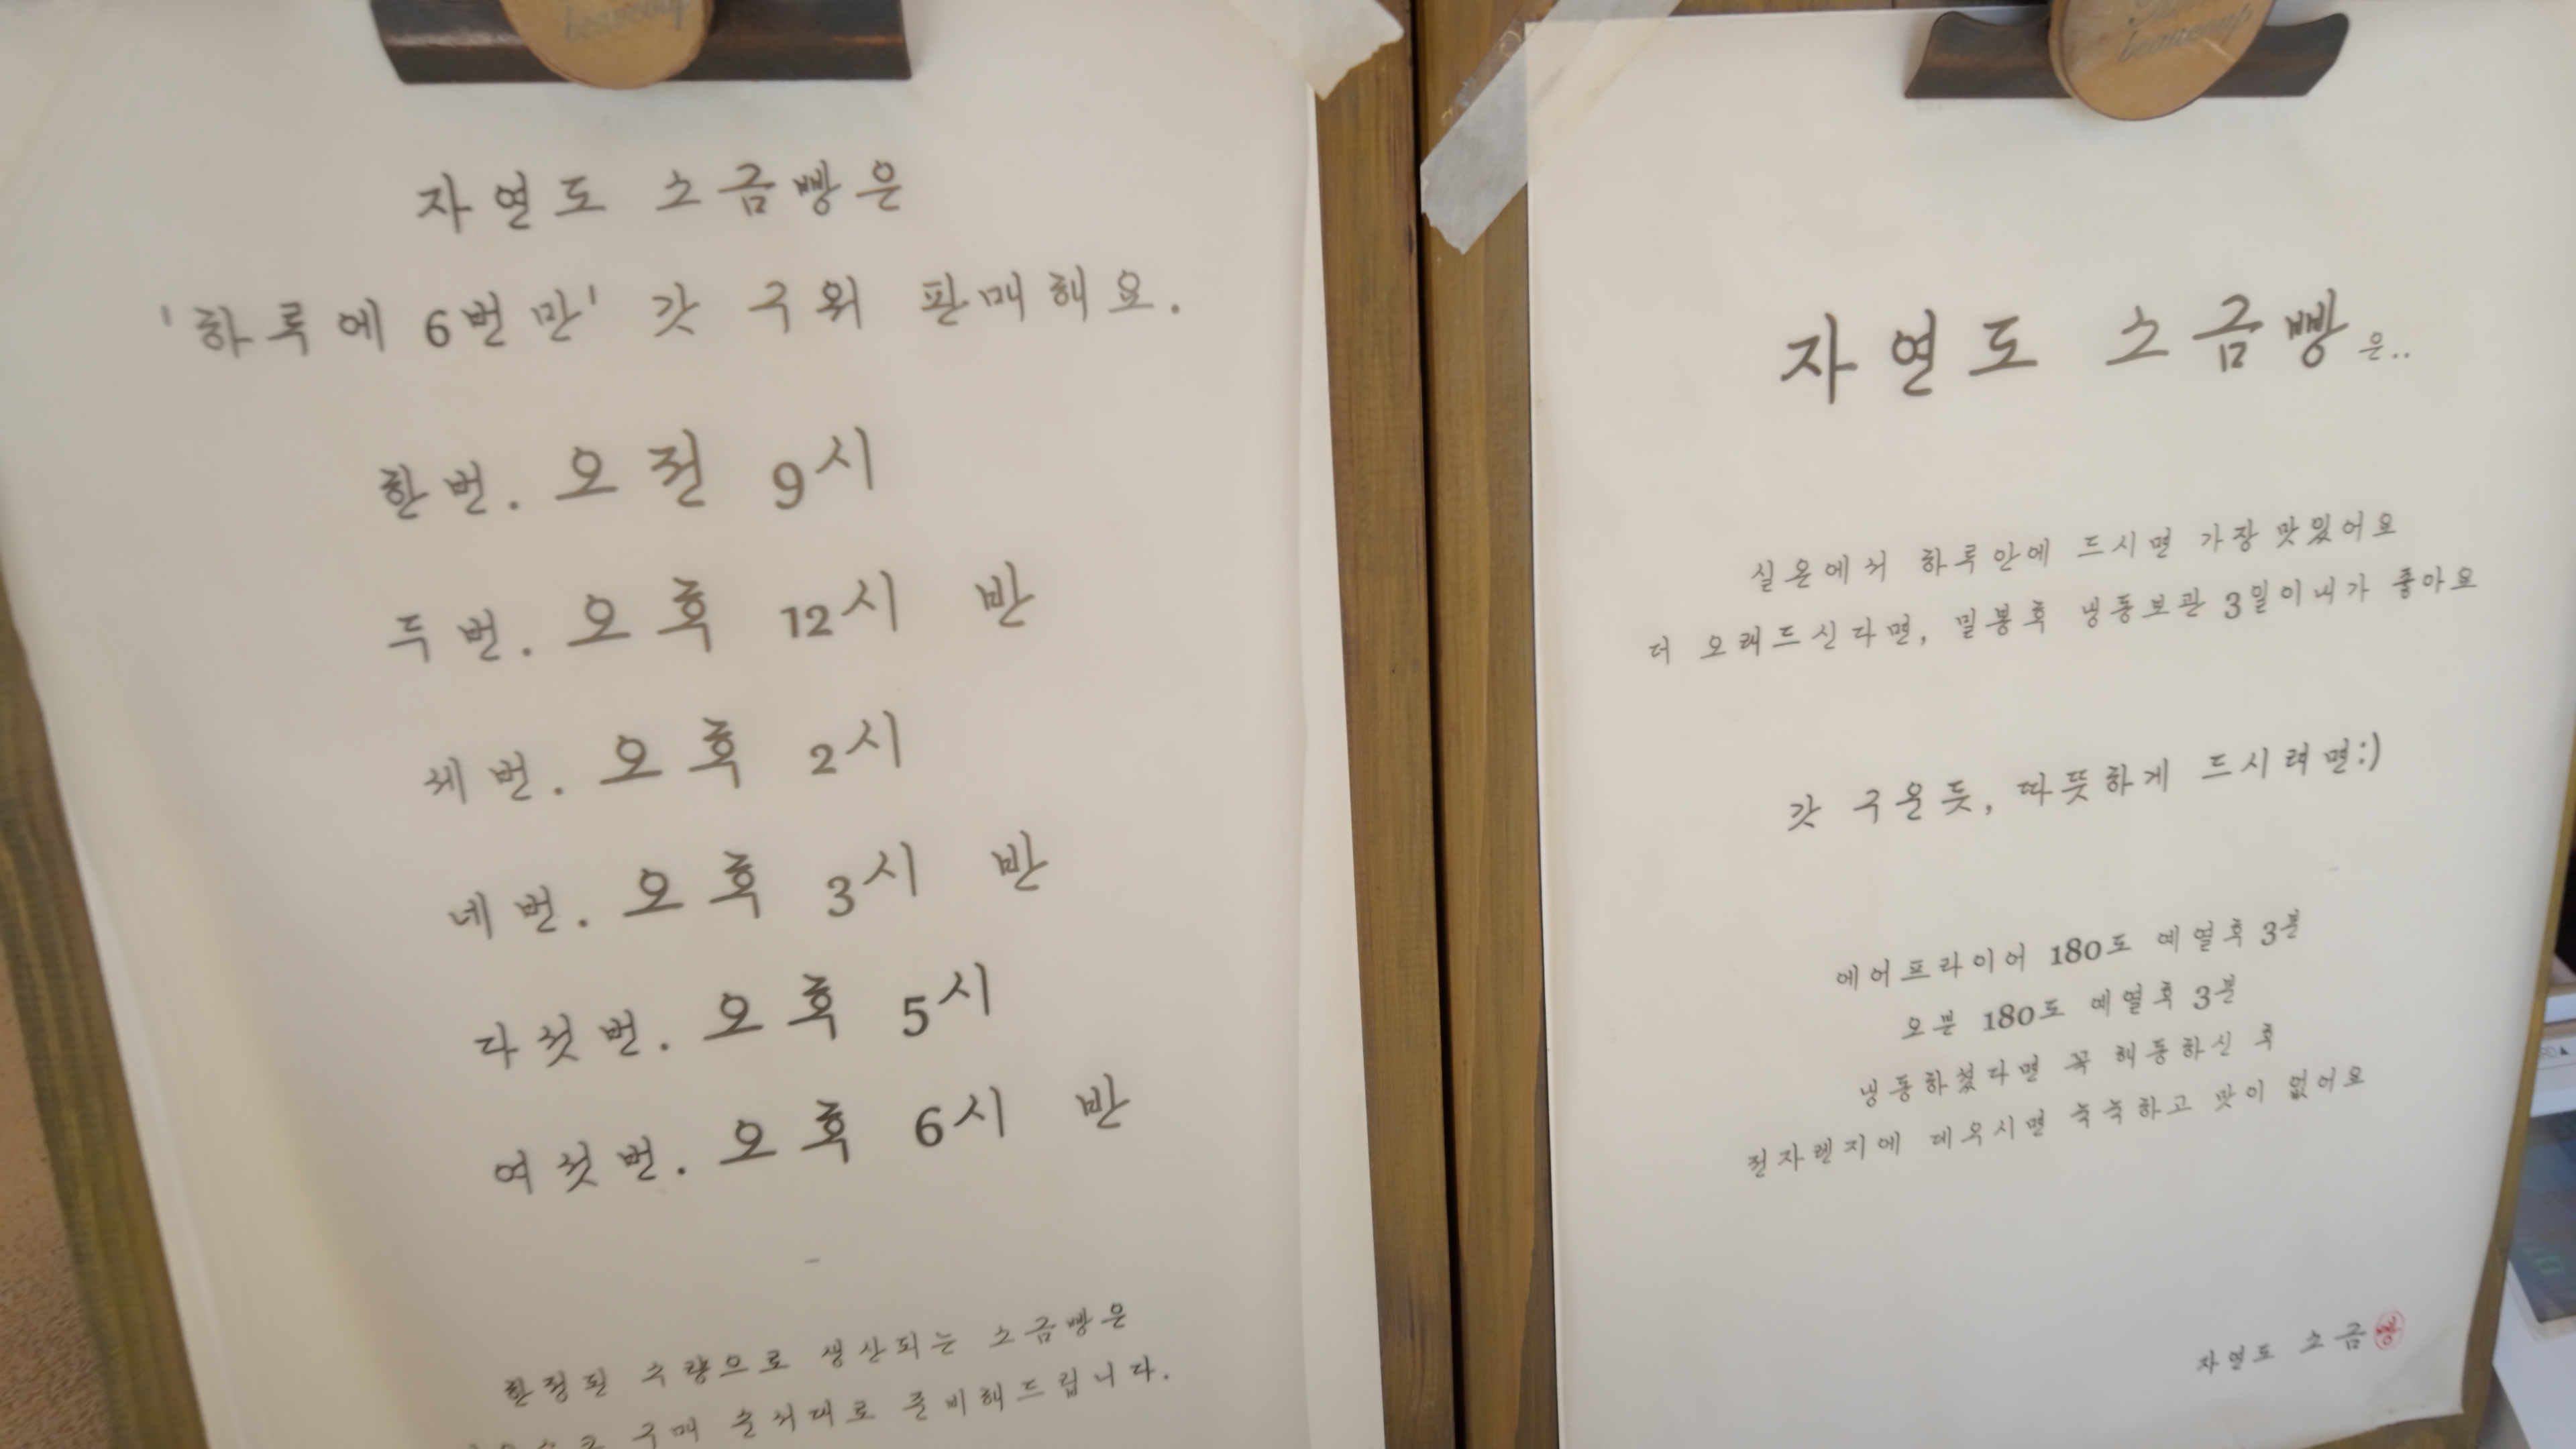 beaucoup
자연도 소금빵은
'하루에 6번만' 갓 구워 판매해요.
한번. 오전 9시
두번. 오후 12시 반
세번. 오후 2시
네번. 오후 3시 반
다섯번. 오후 5시
여섯번. 오후 6시 반
한정된 수량으로 생산되는 소금빵은
구매 순서대로 준비해드립니다.
beaucoup
자연도 소금빵은..
실온에서 하루안에 드시면 가장 맛있어요
더 오래드신다면, 밀봉후 냉동보관 3일이내가 좋아요
갓 구운듯, 따뜻하게 드시려면:)
에어프라이어 180도 예열후 3분
오븐 180도 예열후 3분
냉동하셨다면 꼭 해동하신 후
전자렌지에 데우시면 눅눅하고 맛이 없어요
자연도 소금빵